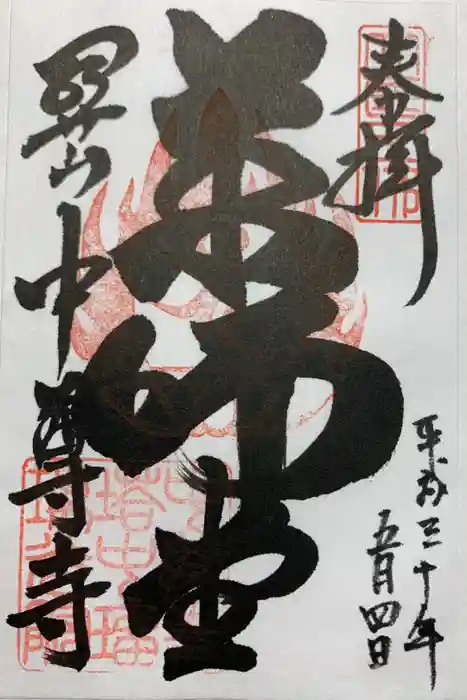 奉拝
平成三十年
五月四日
薬師堂
関山中尊寺